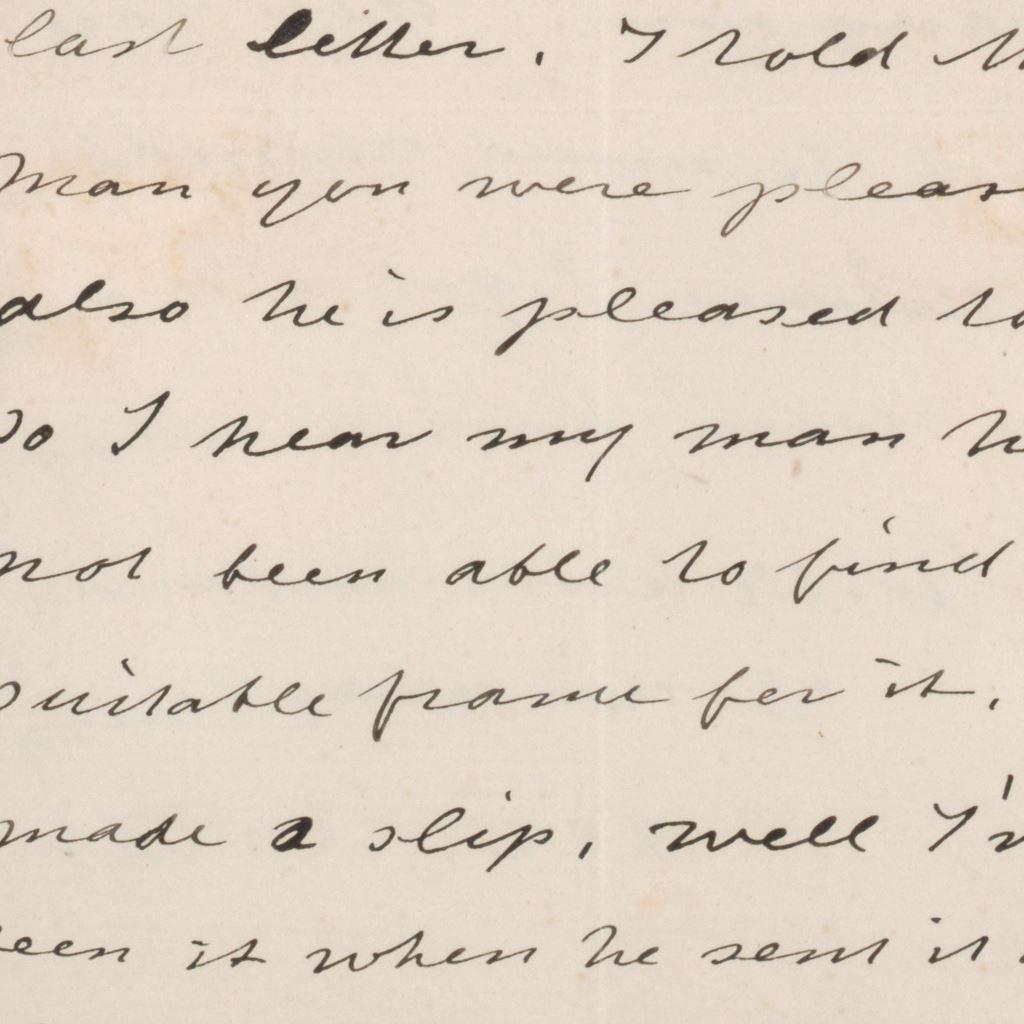 last letter. I told
man you were
also he is pleased to
So I hear my man
not been able to find
suitable frame for it.
made a slip, well
it when he sent it